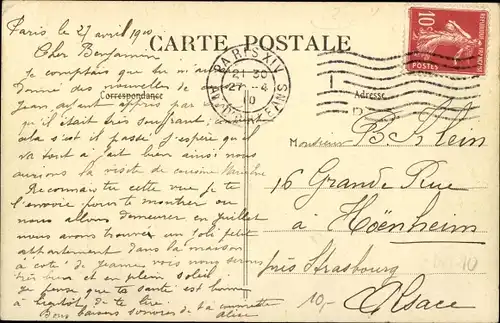 Paris le 27 avril 1910
Cher Benjamin
CARTE POSTALE
PARIS XIV
21 30
27 - 4
10
10c
POSTES
Correspondance
Adresse
Je comptais que tu m'aurais
donné des nouvelles de
Jean, ayant appris par
qu'il était très souffrant,
cela s'est il passé j'espère qu'il
va tout à fait bien ainsi nous
aurions la visite de cousine
Reconnais tu cette vue je te
l'envoie pour te montrer où
nous allons demeurer en juillet
nous avons trouvé un joli petit
appartement dans la maison
à côté de Jeanne, vois nous serons
très bien et en plein soleil
je pense que ta santé est bonne
à bientôt de te lire.
Bons baisers sonores de ta
Alice
Monsieur B. Klein
16 Grande Rue
à Hoënheim
près Strasbourg
Alsace
10,-